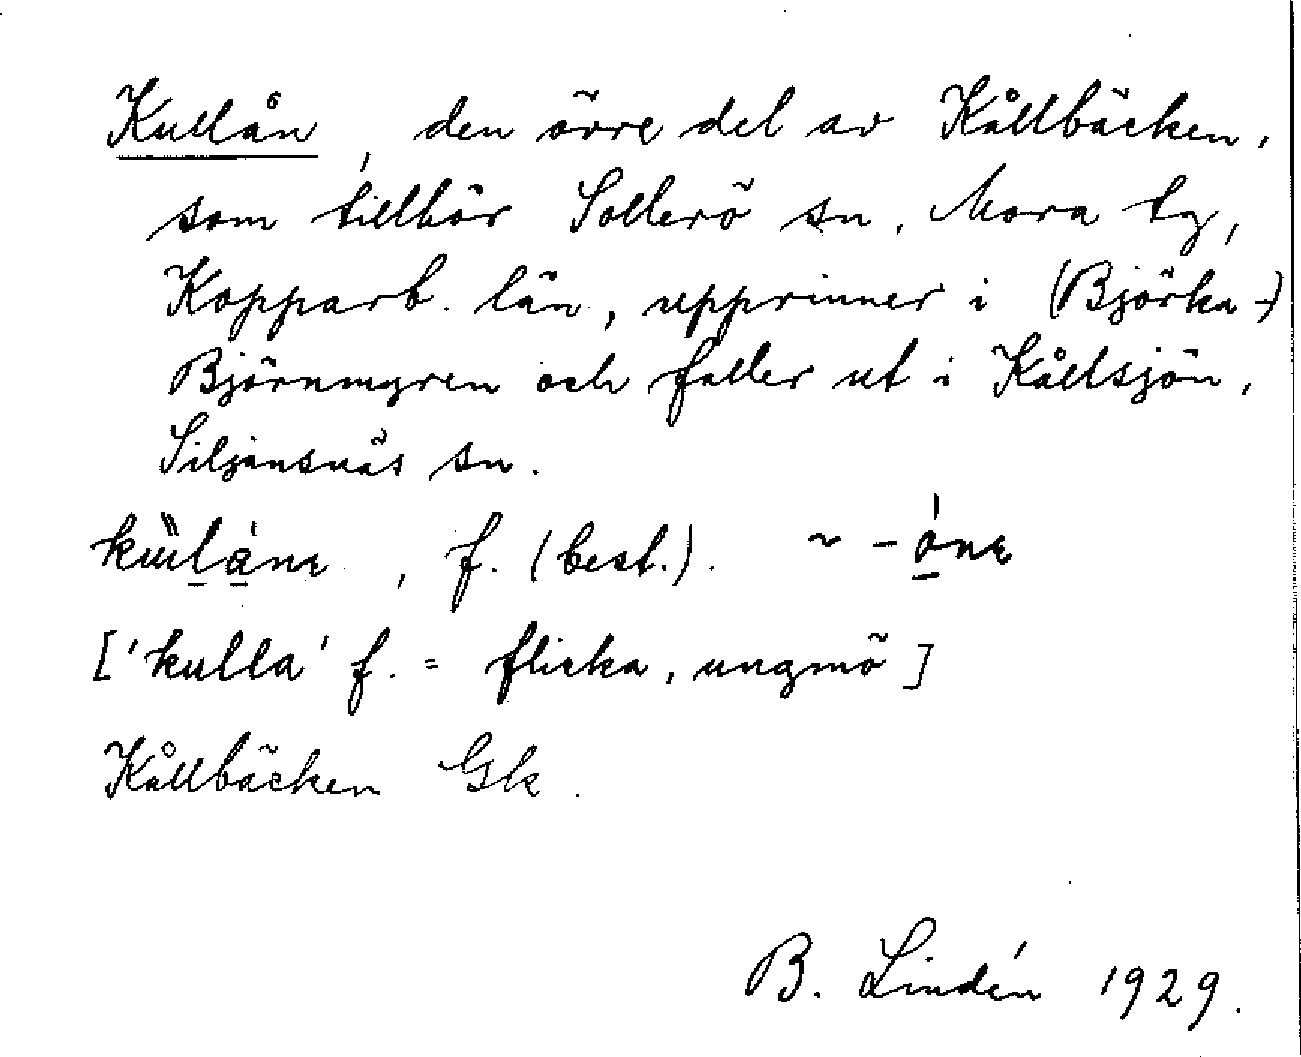 Kullån, den övre del av Kållbäcken,
som tillhör Sollerö sn, Mora tg,
Kopparb. län, upprinner i (Björka-)
Björnmyren och faller ut i Kållsjön,
Siljansnäs sn.
f. (best.). ~
['kulla' f. = flicka, ungmö]
Kållbäcken Gk.
B. Lindén 1929.